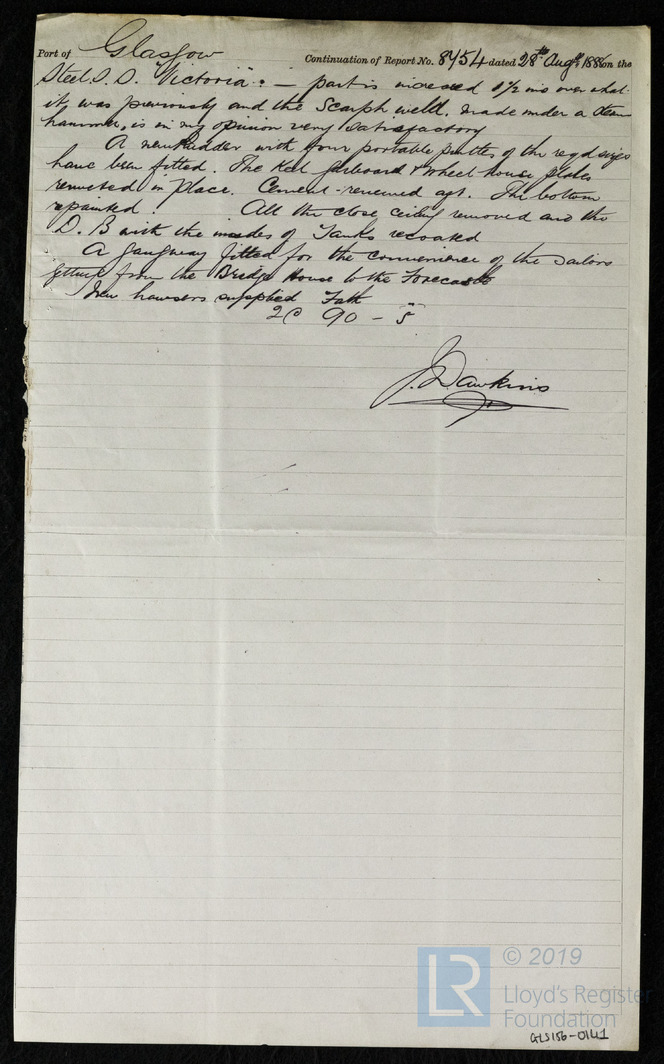 Port of Glasgow Continuation of Report No. 8454 dated 28th Augt 188 on the
Steel S.S. "Victoria":— part is increased 1½ ins over what
it was previously and the Scarph weld, made under a steam
hammer, is in my opinion very satisfactory
A new Rudder with four portable of the reqd sizes
have been fitted. The Keel garboard & wheel house plates
rivetted in Place. Cement renewed aft. The bottom
repainted All the close ceiling removed and the
D.B with the insides of Tanks recoated
A Gangway fitted for the convenience of the Sailors
getting from the Bridge House to the Forecastle
New hawsers supplied Fath
90 - 5"
J. Dawkins
LR © 2019
Lloyd's Register
Foundation
GLS156-0141